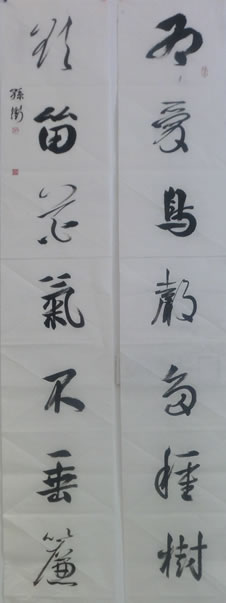 為愛鳥聲多種樹
欲留花氣不垂簾
孫